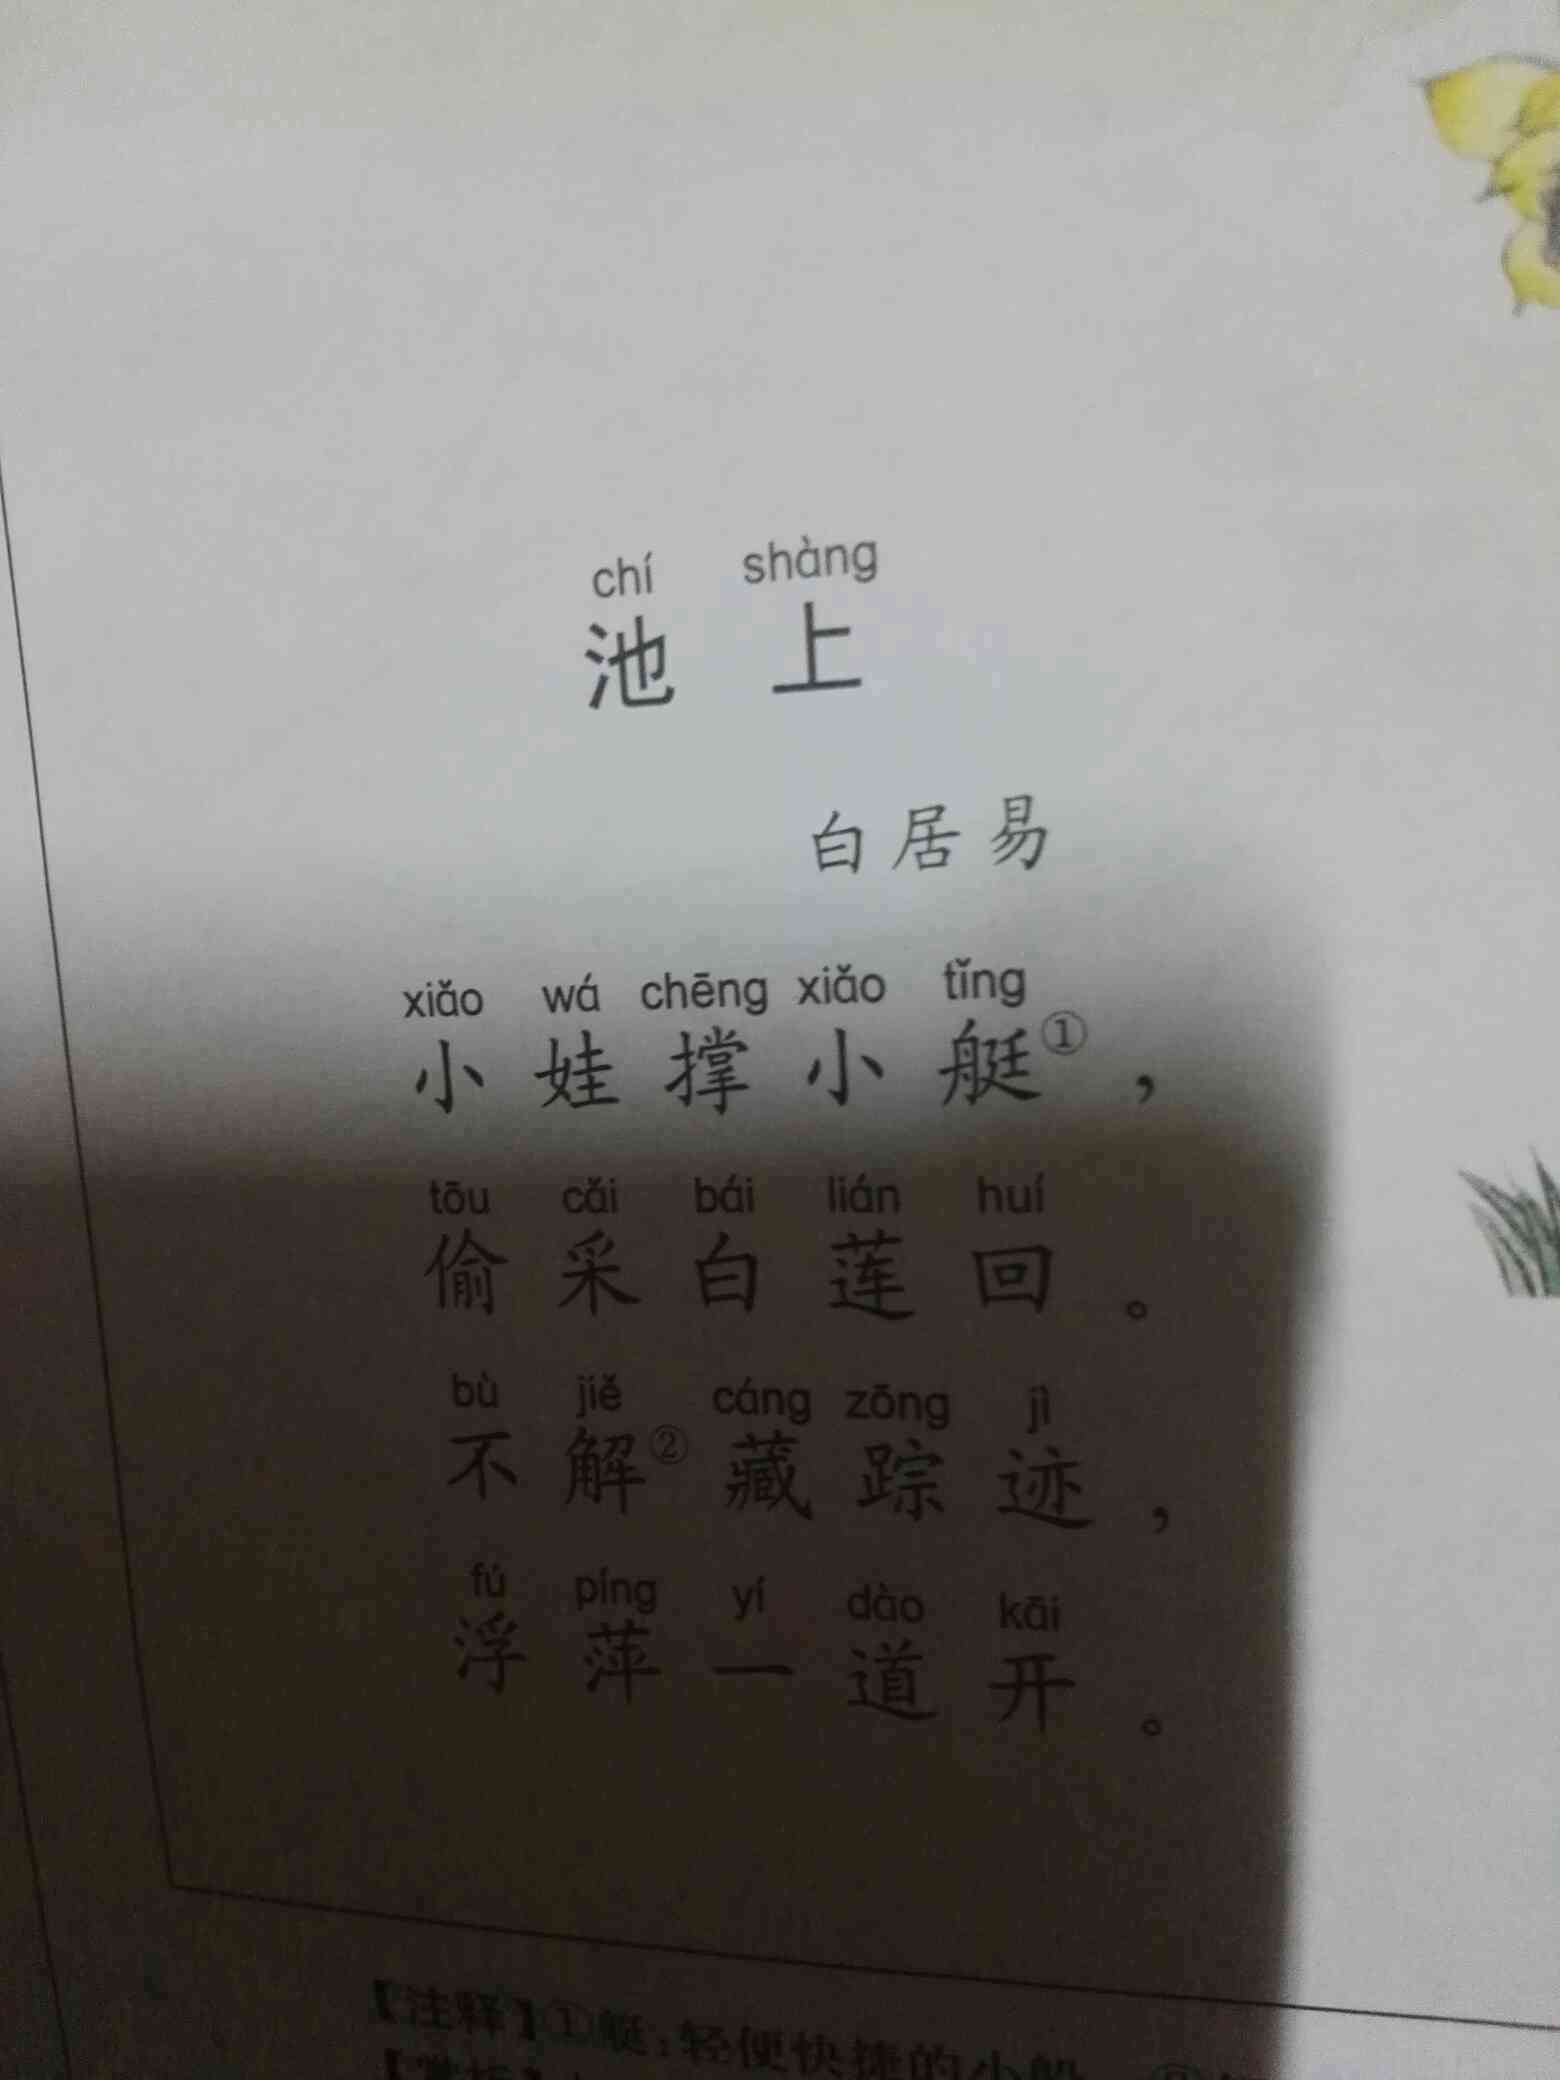 chí shàng
池上
白居易
xiǎo wá chēng xiǎo tǐng
小娃撑小艇①，
tōu cǎi bái lián huí
偷采白莲回。
bù jiě cáng zōng jì
不解②藏踪迹，
fú píng yí dào kāi
浮萍一道开。
【注释】①艇：轻便快捷的小船